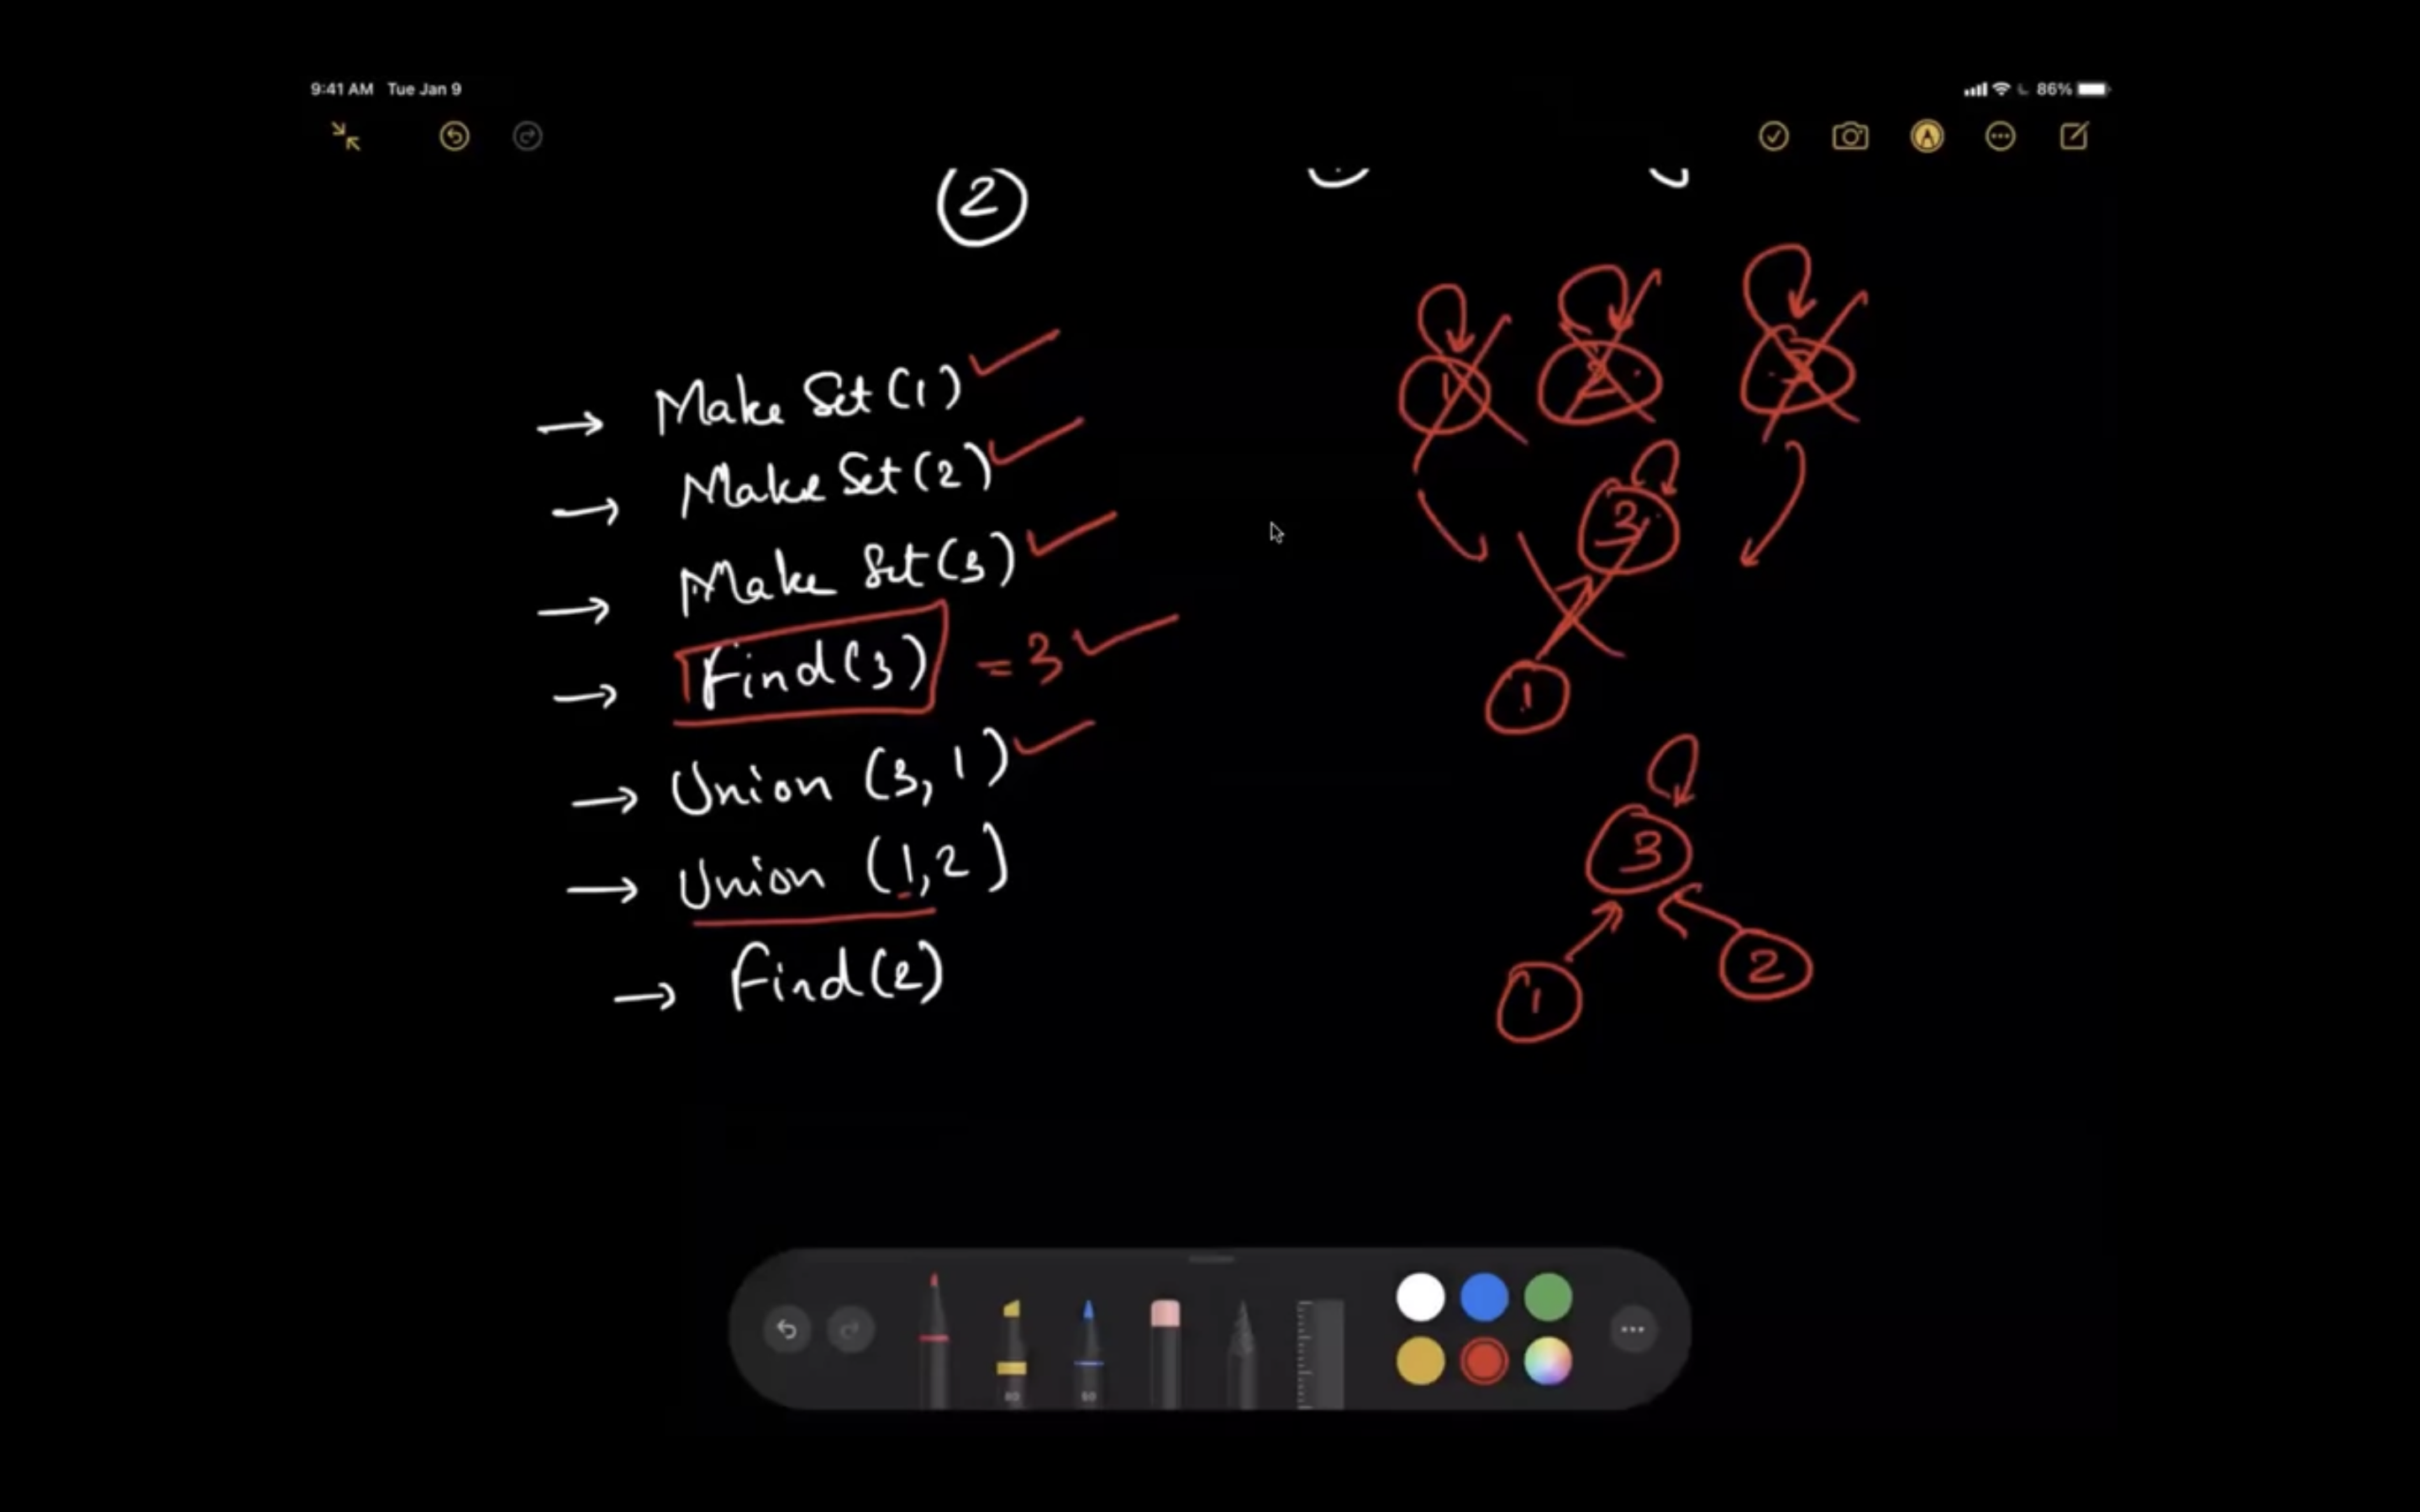 9:41 AM Tue Jan 9
86%
2
1 2 3
→ Make Set (1)
→ Make Set (2)
→ Make Set (3)
→ Find (3) = 3
→ Union (3, 1)
→ Union (1,2)
→ Find (2)
3
1
3
1 2
80 50